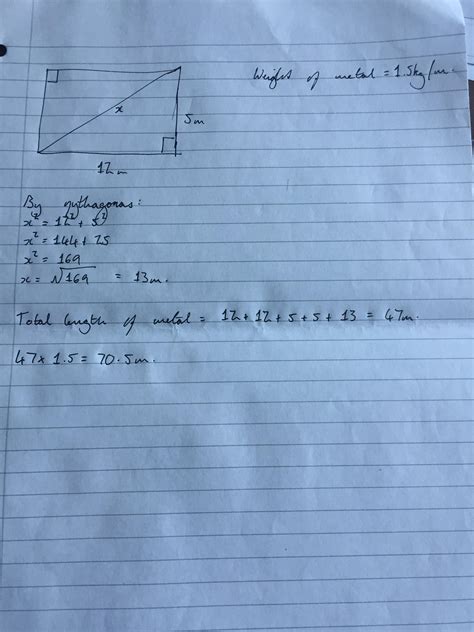 Weight of metal = 1.5kg/m.
x
5m
12m
By pythagoras:
x² = 12² + 5²
x² = 144 + 25
x² = 169
x = √169 = 13m.
Total length of metal = 12 + 12 + 5 + 5 + 13 = 47m.
47 × 1.5 = 70.5m.